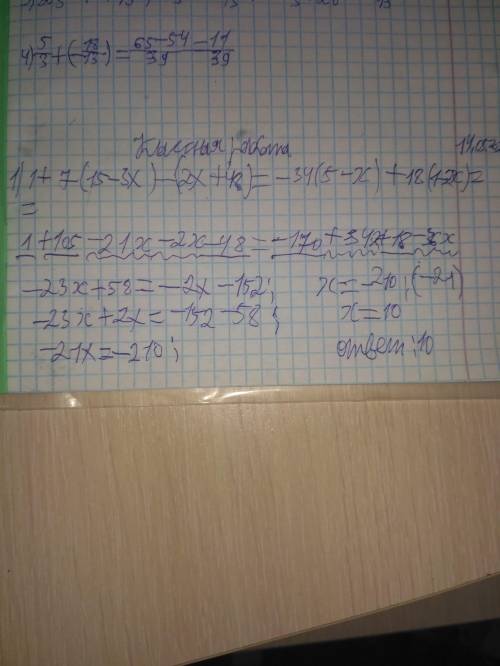 4) 5/3 + (-18/13) = 65-54/39 - 11/39
Классная работа
1) 1 + 7(15-3x) - (2x+48) = -34(5-x) + 18(1-2x) =
=
1 + 105 - 21x - 2x - 48 = -170 + 34x + 18 - 36x
-23x + 58 = -2x - 152;
-23x + 2x = -152 - 58;
-21x = -210;
x = -210 : (-21)
x = 10
ответ: 10